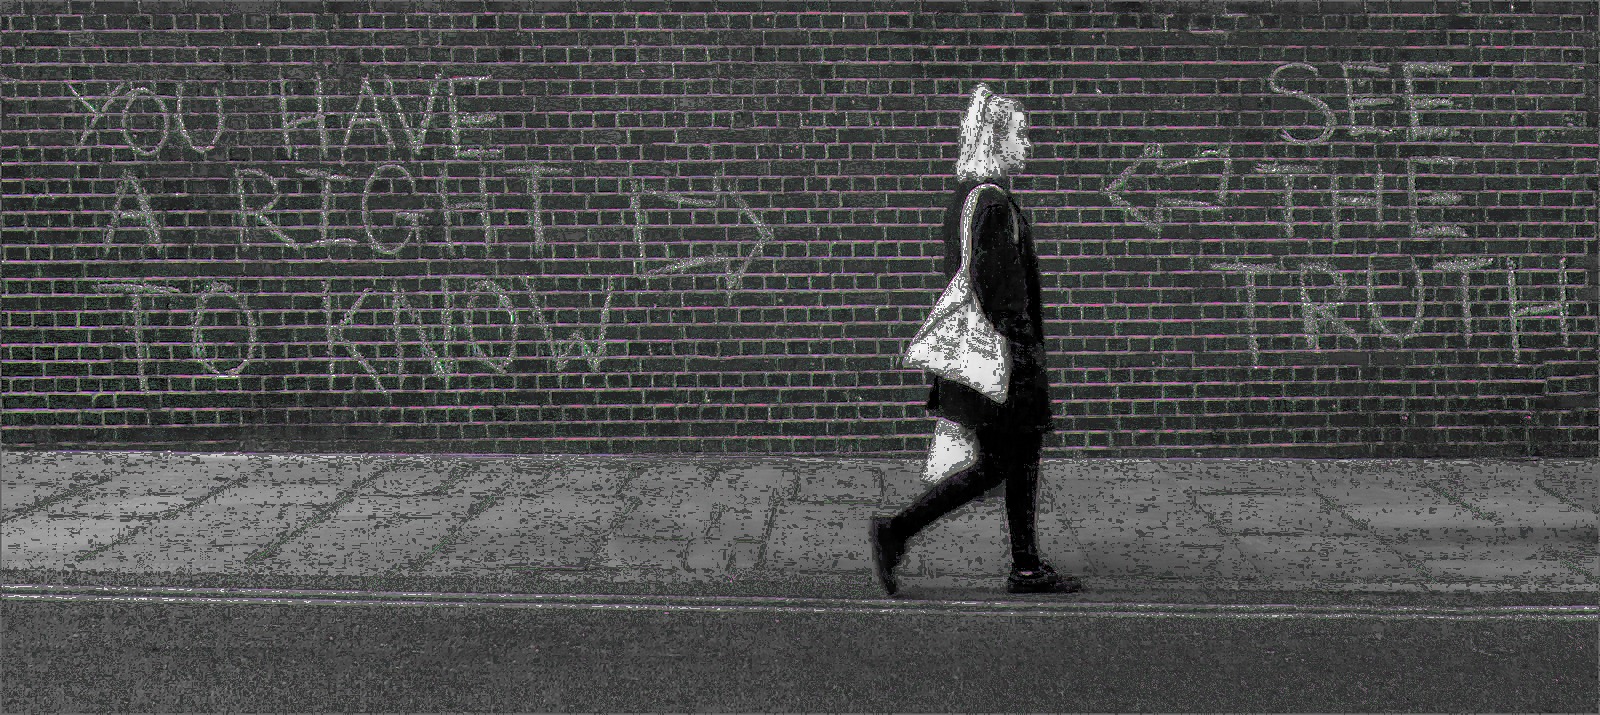 YOU HAVE
A RIGHT
TO KNOW
SEE
THE
TRUTH